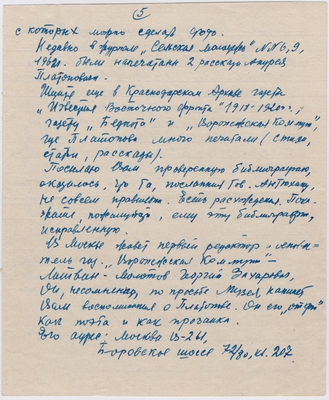 5
с которых можно сделать фото.
Недавно в журнале „Сельская молодежь" №№ 6, 9,
1962г. были напечатаны 2 рассказа Андрея
Платонова.
Ищите еще в Краснодарском Архиве газета
„Известия Восточного фронта" 1918-1920гг.,
газету „Беднота" и „Воронежская Коммуна",
где Платонова много печатали (стихи,
статьи, рассказы).
Посылаю Вам проверенную библиографию,
оказалось, что та, посланная Тов. Антюхину,
не совсем правильная. Есть расхождения.
пожалуйста, ему эту библиографию,
исправленную.
В Москве живет первый редактор и
газ. „Воронежская Коммуна" —
Литвин-Молотов Георгий Захарович,
Он, несомненно, по просьбе Музея, напишет
Вам воспоминания о Платонове. Он его „открыл"
как поэта и как прозаика.
Его адрес: Москва В-261,
Боровское шоссе 72/80, кв. 207.